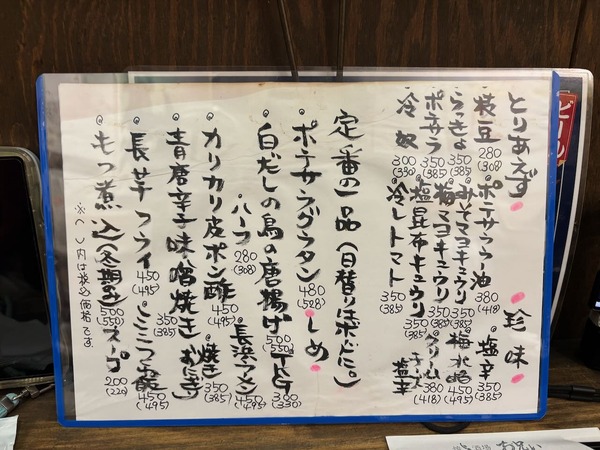 とりあえず
枝豆 280 (308)
らっきょ 350 (385)
ポテサラ 350 (385)
冷奴 300 (330)
ポテサララー油 380 (418)
みそマヨキュウリ 350 (385)
梅マヨキュウリ 350 (385)
塩昆布キュウリ 350 (385)
冷しトマト 350 (385)
珍味
塩辛 350 (385)
梅水晶 450 (495)
クリームチーズ塩辛 380 (418)
定番の一品(日替りはボードに。)
ポテサラグラタン 480 (528)
白だしの鳥の唐揚げ 500 (550)
ハーフ 280 (308)
カリカリ皮ポン酢 450 (495)
青唐辛子味噌焼き 350 (385)
長芋フライ 450 (495)
もつ煮込(冬期のみ) 500 (550)
しめ
300 (330)
長浜ラーメン 450 (495)
焼きおにぎり 350 (385)
450 (495)
スープ 200 (220)
※( )内は税込価格です。
ビール